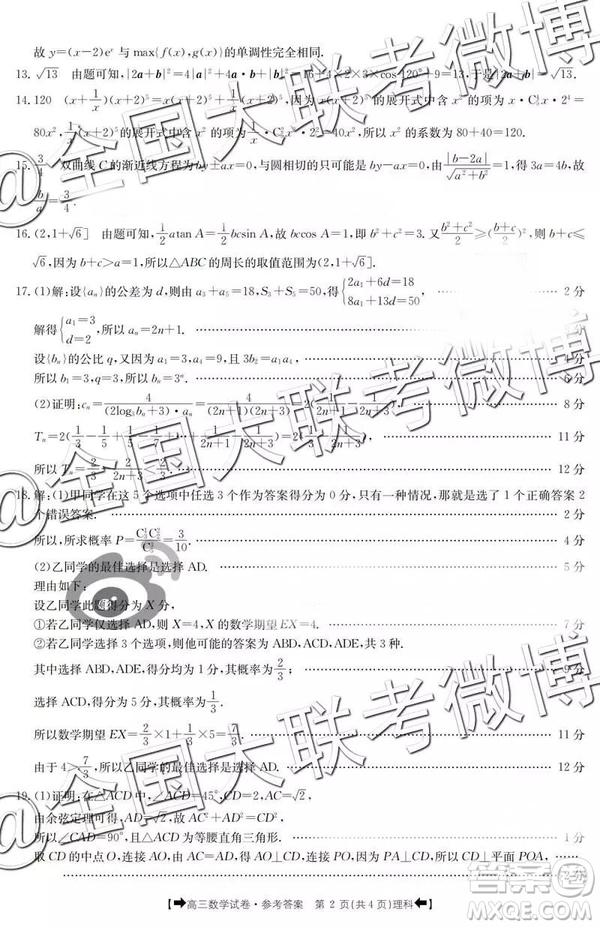 故 y=(x-2)eˣ 与 max{f(x),g(x)}的单调性完全相同.
13. √13 由题可知,|2a+b|²=4|a|²+4a·b+|b|²=16+4×2×3×cos120°+9=13,于是|2a+b|=√13.
14. 120 (x+1/x)(x+2)⁵=x(x+2)⁵+1/x(x+2)⁵,x(x+2)⁵的展开式中含 x² 的项为 x·C⁴₅x·2⁴=
80x²,1/x(x+2)⁵的展开式中含 x² 的项为 1/x·C²₅x³·2²=40x²,所以 x² 的系数为 80+40=120.
15. 3/4 双曲线 C 的渐近线方程为 by±ax=0,与圆相切的只可能是 by-ax=0,由|b-2a|/√(a²+b²)=1,得 3a=4b,故
b/a=3/4.
16. (2,1+√6] 由题可知,1/2 a tan A=1/2 bc sin A,故 bc cos A=1,即 b²+c²=3. 又(b²+c²)/2≥((b+c)/2)²,所以 b+c≤
√6,因为 b+c>a=1,所以△ABC 的周长的取值范围为(2,1+√6].
17. (1)解:设{aₙ}的公差为 d,则由 a₃+a₅=18,S₃+S₅=50,得{2a₁+6d=18 8a₁+13d=50, 2 分
解得{a₁=3 d=2,所以 aₙ=2n+1.
设{bₙ}的公比 q,又因为 a₁=3,a₄=9,且 3b₂=a₁a₄,
所以 b₁=3,q=3,所以 bₙ=3ⁿ. 6 分
(2)证明:cₙ=4/((2log₃bₙ+3)·aₙ)=4/((2n+1)(2n+3)) 8 分
Tₙ=2(1/3-1/5+1/5-1/7+⋯+1/(2n+1)-1/(2n+3))=2(1/3-1/(2n+3)) 11 分
所以 Tₙ=2/3-2/(2n+3)<2/3. 12 分
18. 解:(1)甲同学在这 5 个选项中任选 3 个作为答案得分为 0 分,只有一种情况,那就是选了 1 个正确答案 2
个错误答案. 2 分
所以,所求概率 P=C¹₃C²₂/C³₅=3/10. 4 分
(2)乙同学的最佳选择是选择 AD. 5 分
理由如下:
设乙同学此题得分为 X 分,
①若乙同学仅选择 AD,则 X=4,X 的数学期望 EX=4. 7 分
②若乙同学选择 3 个选项,则他可能的答案为 ABD,ACD,ADE,共 3 种.
其中选择 ABD,ADE,得分均为 1 分,其概率为2/3; 9 分
选择 ACD,得分为 5 分,其概率为1/3.
所以数学期望 EX=2/3×1+1/3×5=7/3. 11 分
由于 4>7/3,所以乙同学的最佳选择是选择 AD. 12 分
19. (1)证明:在△ACD 中,∠ACD=45°,CD=2,AC=√2,
由余弦定理可得,AD=√2,故 AC²+AD²=CD²,
所以∠CAD=90°,且△ACD 为等腰直角三角形. 1 分
取 CD 的中点 O,连接 AO,由 AC=AD,得 CD⊥AO,连接 PO,因为 PA⊥CD,所以 CD⊥平面 POA,
2 分
高三数学试卷·参考答案 第 2 页(共 4 页)理科
@全国大联考微博
@全国大联考微博
@全国大联考微博
答案圈